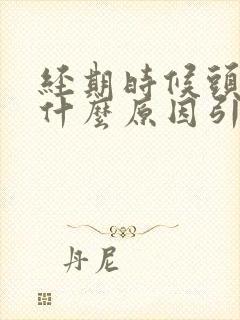 經期時候頭
什麼原因引
丹尼